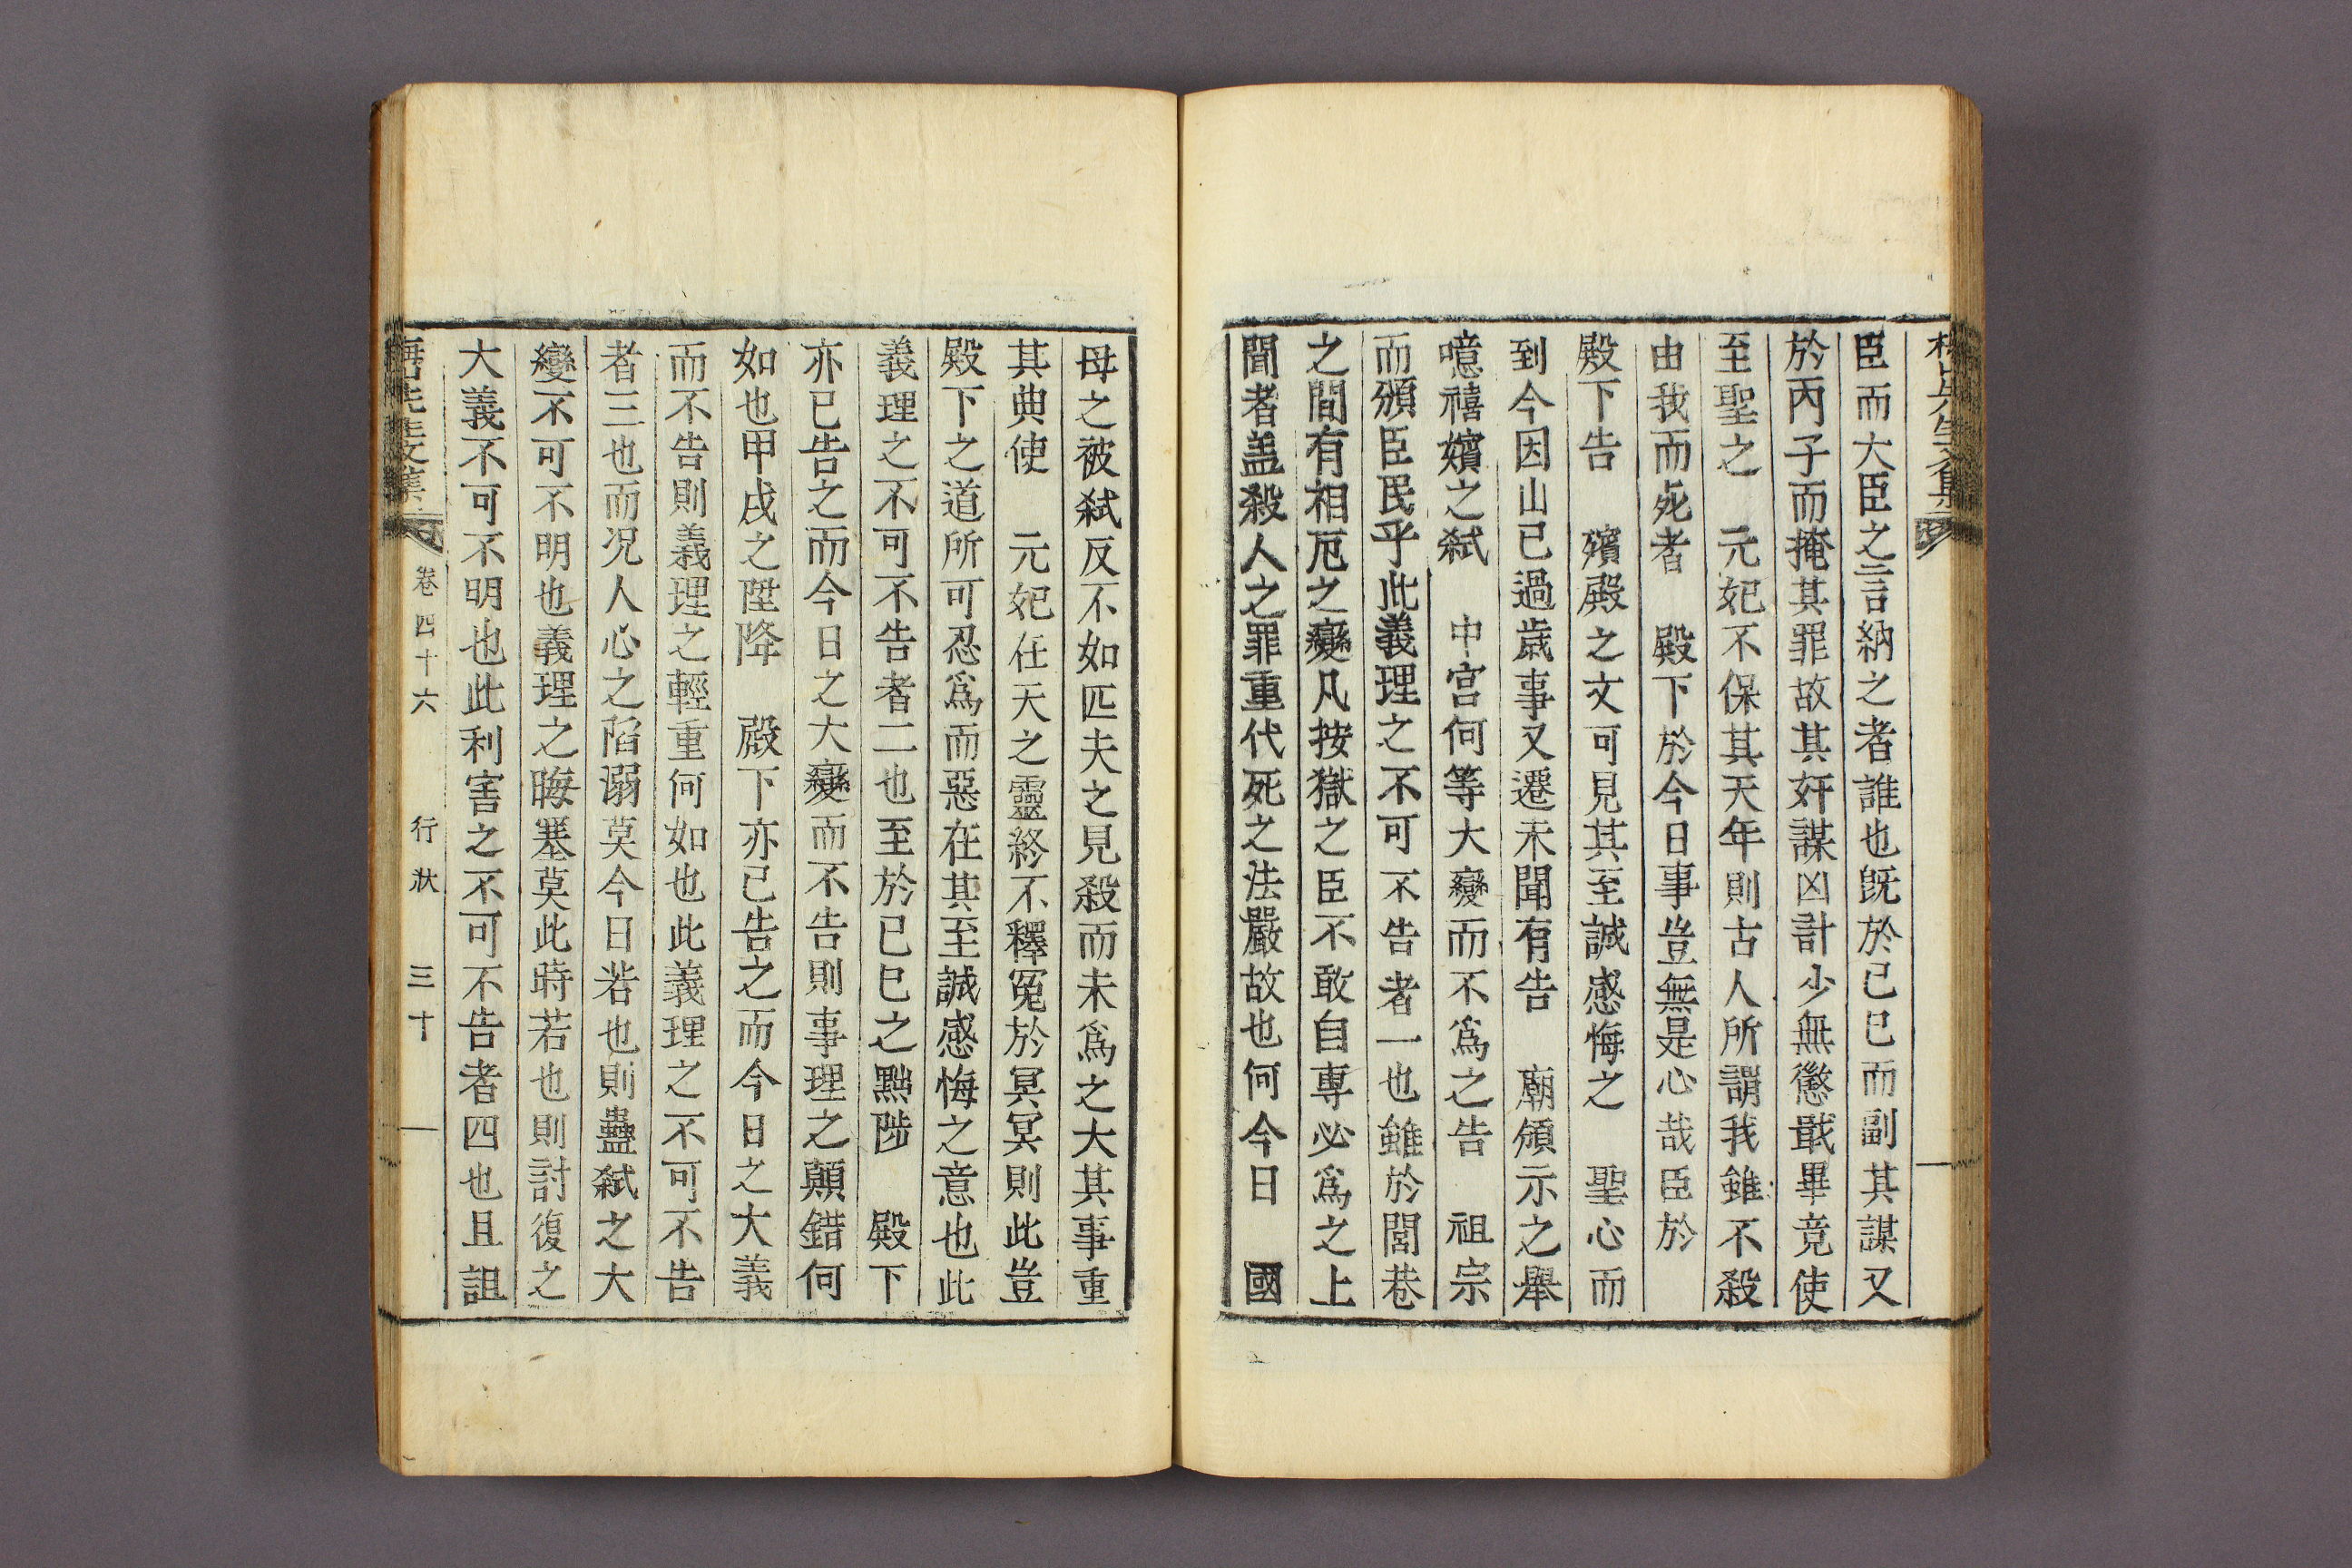 臣而大臣之言納之者誰也旣於己巳而副其謀又
於丙子而掩其罪故其奸謀凶計少無懲戢畢竟使
至聖之 元妃不保其天年則古人所謂我雖不殺
由我而死者 殿下於今日事豈無是心哉臣於
殿下告 殯殿之文可見其至誠感悔之 聖心而
到今因山已過歲事又遷未聞有告 廟頒示之擧
噫禧嬪之弑 中宮何等大變而不爲之告 祖宗
而頒臣民乎此義理之不可不告者一也雖於閭巷
之間有相厄之變凡按獄之臣不敢自專必爲之上
聞者盖殺人之罪重代死之法嚴故也何今日 國
母之被弑反不如匹夫之見殺而未爲之大其事重
其典使 元妃在天之靈終不釋寃於冥冥則此豈
殿下之道所可忍爲而惡在其至誠感悔之意也此
義理之不可不告者二也至於己巳之黜陟 殿下
亦已告之而今日之大變而不告則事理之顚錯何
如也甲戌之陞降 殿下亦已告之而今日之大義
而不告則義理之輕重何如也此義理之不可不告
者三也而況人心之陷溺莫今日若也則蠱弑之大
變不可不明也義理之晦塞莫此時若也則討復之
大義不可不明也此利害之不可不告者四也且詛
卷四十六 行狀 三十